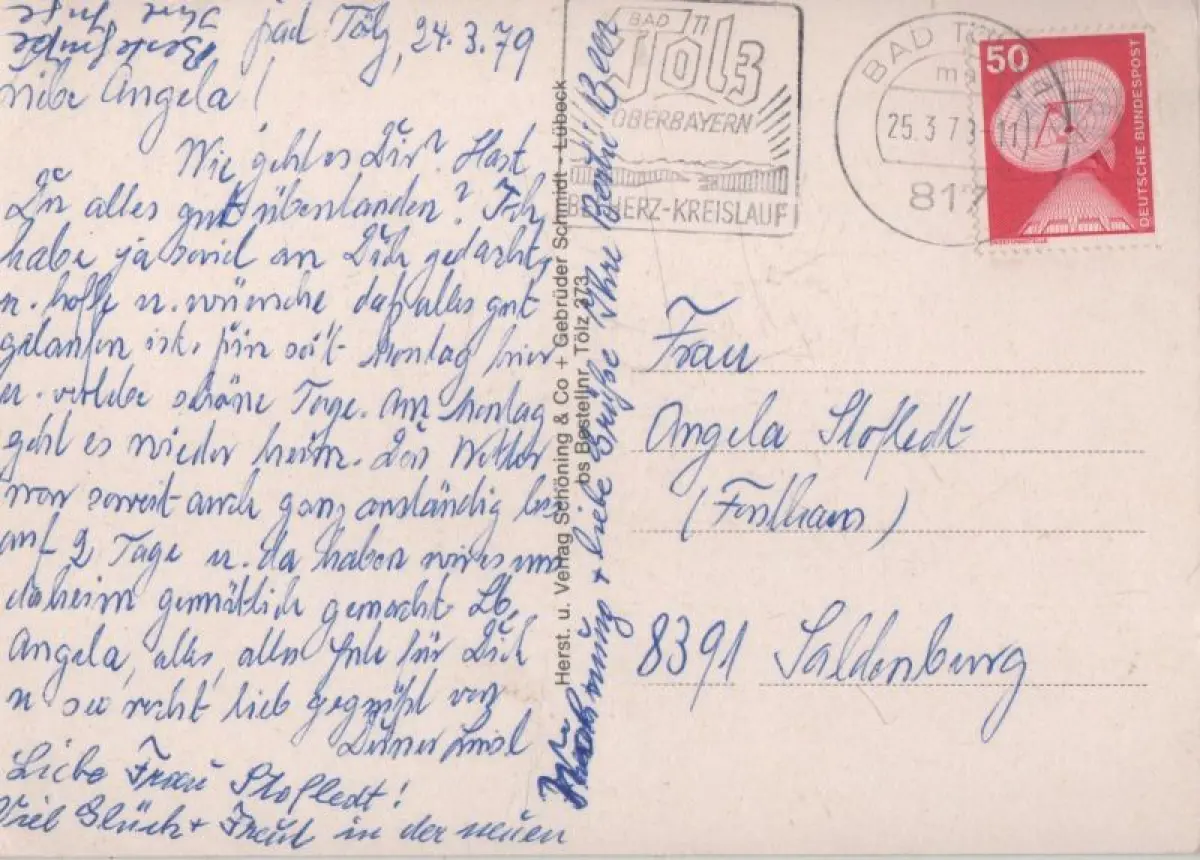 Bad Tölz, 24.3.79
Liebe Angela!
Wie geht es Dir? Hast
Du alles gut überstanden? Ich
habe ja soviel an Dich gedacht,
u. hoffe u. wünsche daß alles gut
gelaufen ist. Bin seit Montag hier
u. verlebe schöne Tage. Am Montag
geht es wieder heim. Das Wetter
war soweit auch ganz anständig bis
auf 2 Tage u. da haben wir es uns
daheim gemütlich gemacht. Lb.
Angela, alles, alles Gute für Dich
u. sei recht lieb gegrüßt von
Deiner Liesl
Liebe Frau Stofledt!
Viel Glück + Freud in der neuen
Wohnung + liebe Grüße Ihre Beer
Ihre
Herst. u. Verlag Schöning & Co + Gebrüder Schmidt - Lübeck
bs Bestellnr. Tölz 373
BAD
Tölz
OBERBAYERN
BEI HERZ-KREISLAUF
BAD TÖL
25.3.79-11
817
50
DEUTSCHE BUNDESPOST
Frau
Angela Stofledt
(Forsthaus)
8391 Saldenburg